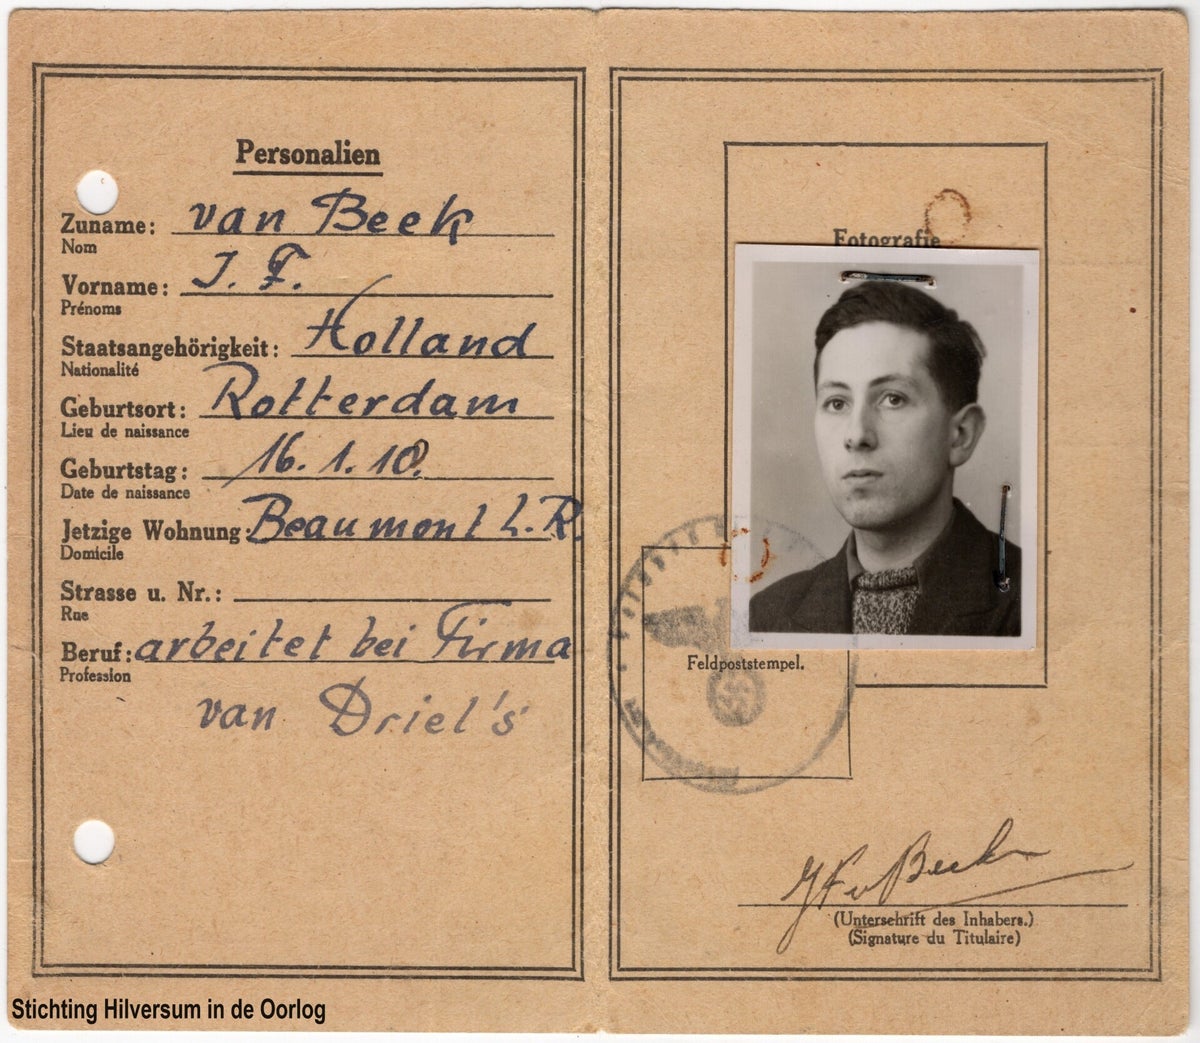 Personalien
Zuname: van Beek
Nom
Vorname: J. F.
Prénoms
Staatsangehörigkeit: Holland
Nationalité
Geburtsort: Rotterdam
Lieu de naissance
Geburtstag: 16. 1. 18.
Date de naissance
Jetzige Wohnung: Beaumont L. R.
Domicile
Strasse u. Nr.:
Rue
Beruf: arbeitet bei Firma
Profession
van Driel's
Fotografie
Feldpoststempel.
(Unterschrift des Inhabers.)
(Signature du Titulaire)
Stichting Hilversum in de Oorlog